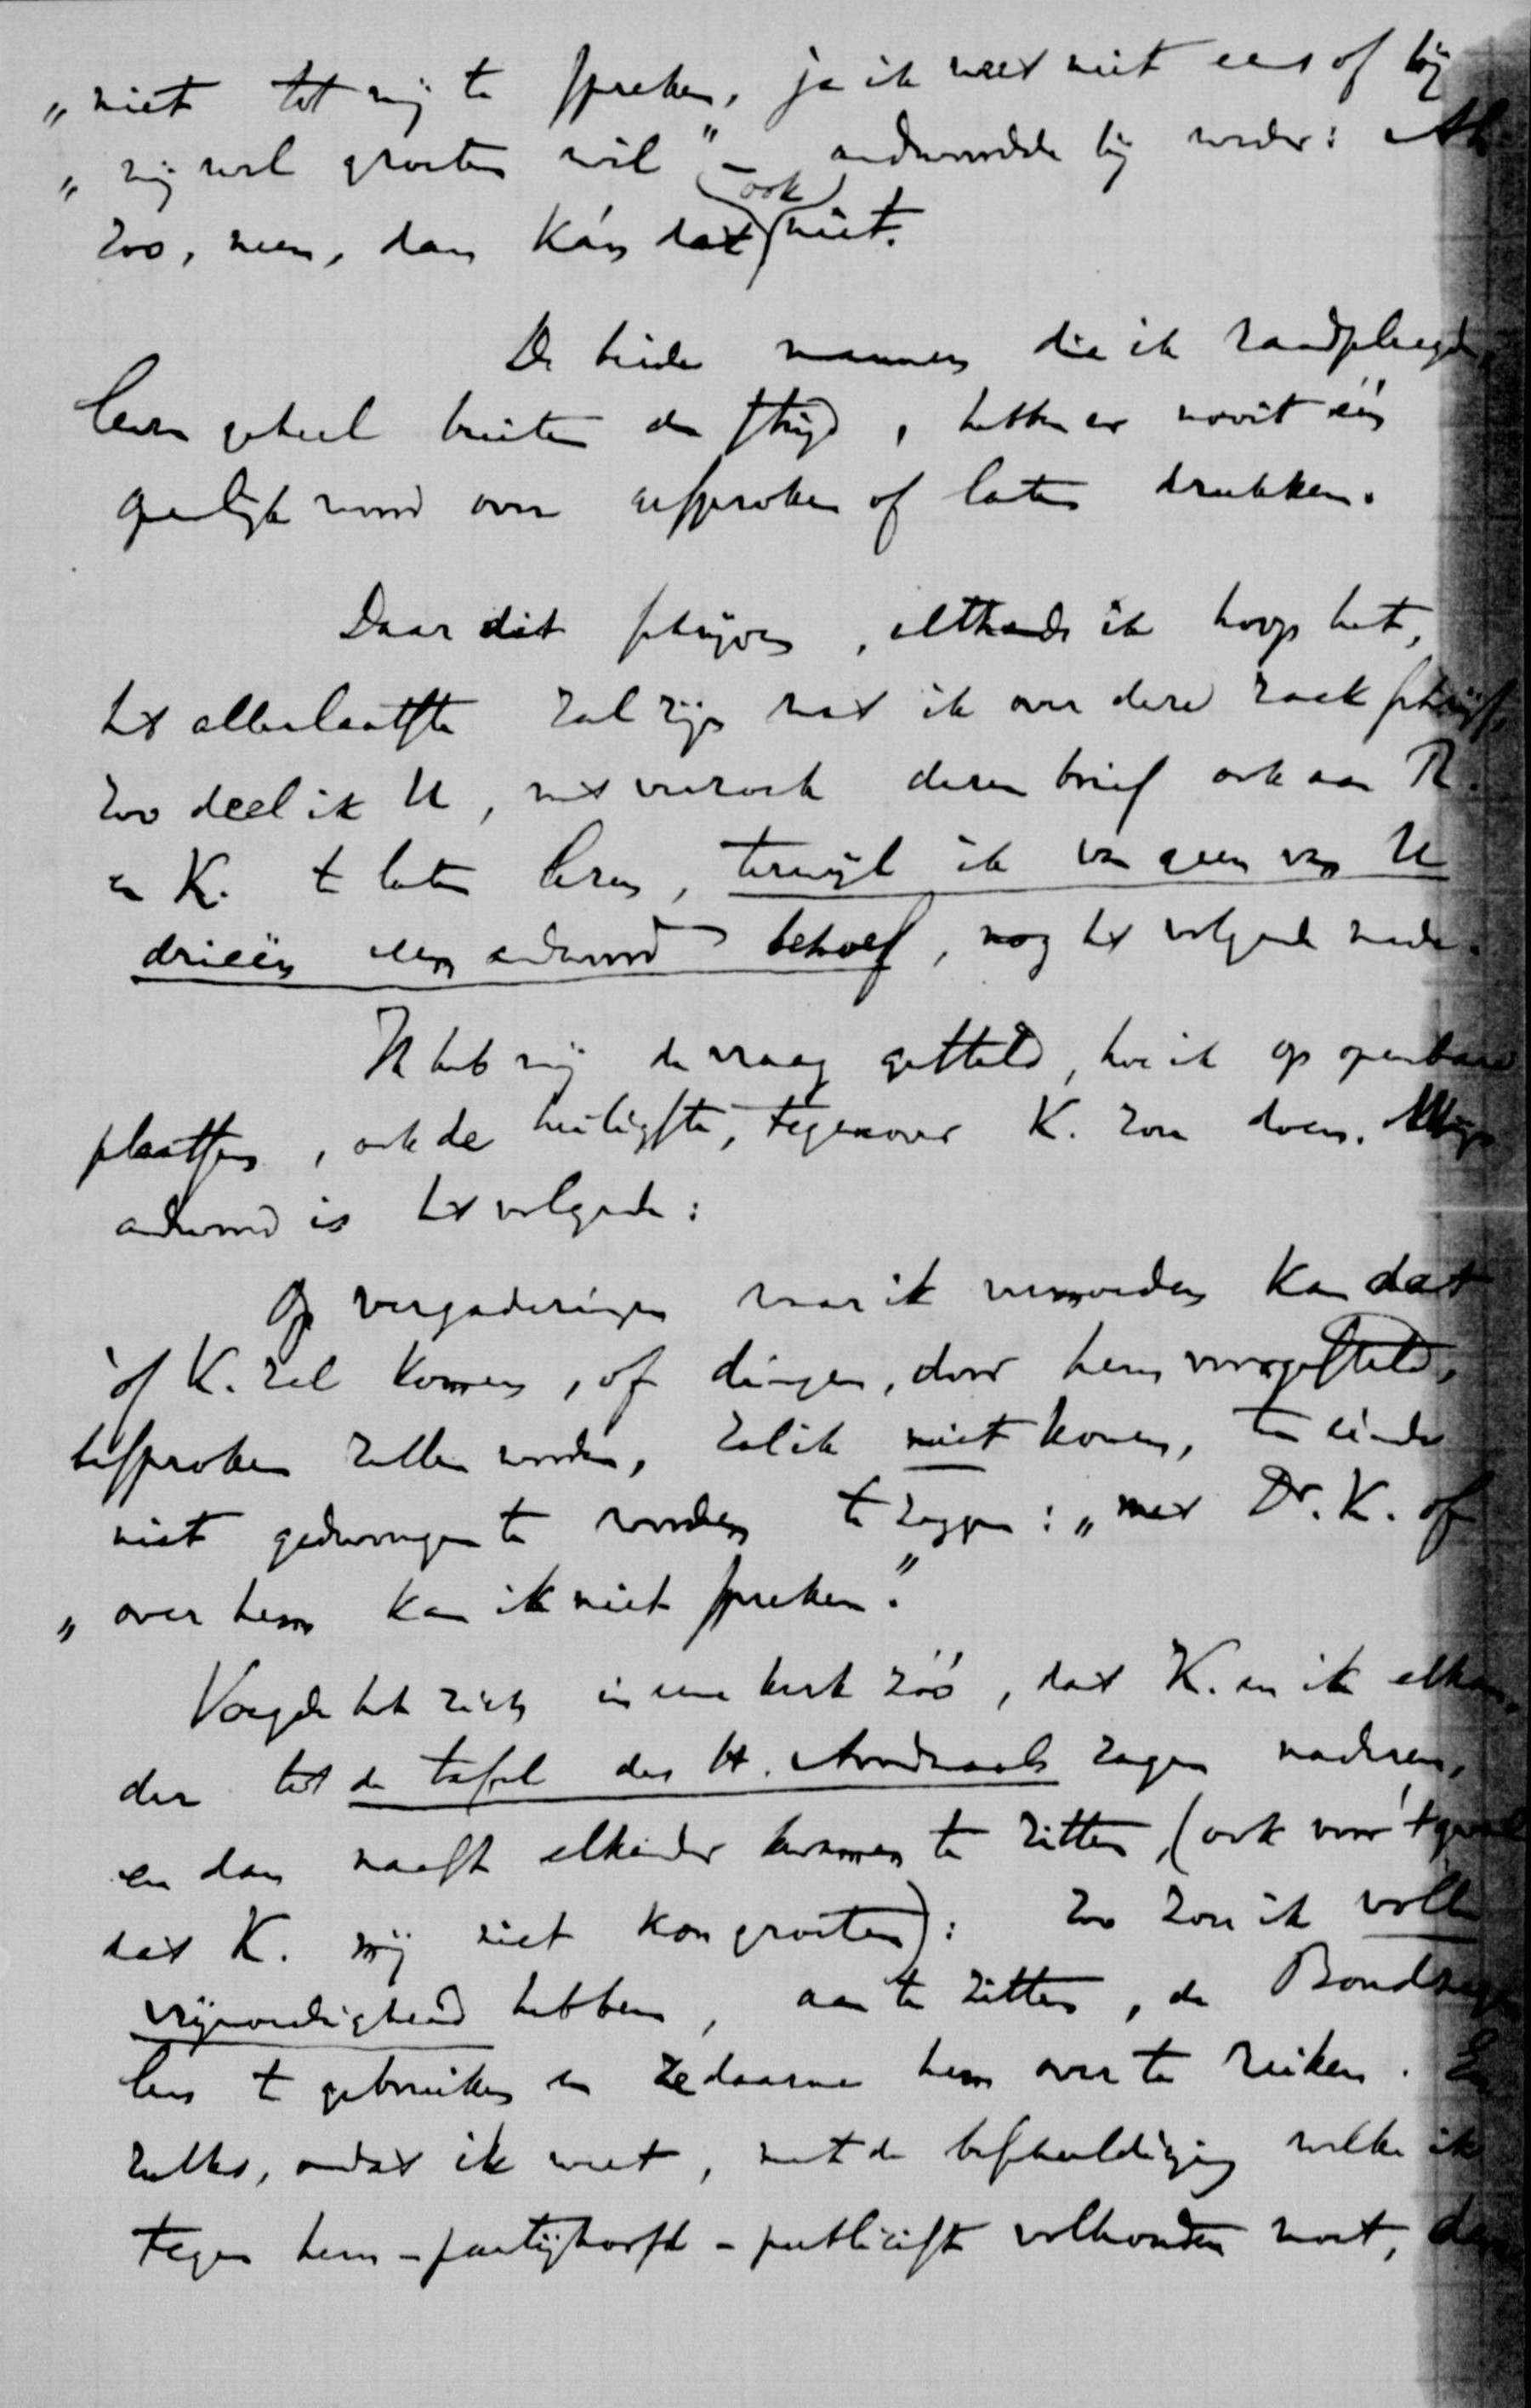 „niet tot mij te spreken, ja ik weet niet eens of hij
„mij wel groeten wil" – antwoordde hij weder: Ah
zoo, neen, dan kán dat ook niet.
De beide mannen die ik raadpleegde,
leven geheel buiten den strijd, hebben er nooit één
openlijk woord over gesproken of laten drukken.
Daar dit schrijven, althands ik hoop het,
het allerlaatste zal zijn wat ik over deze zaak schrijf,
zoo deel ik U, met verzoek dezen brief ook aan R.
en K. te laten lezen, terwijl ik van geen van U
drieën een antwoord behoef, nog het volgende mede.
Ik heb mij de vraag gesteld, hoe ik op openbare
plaatsen, ook de heiligste, tegenover K. zou doen. Mijn
antwoord is het volgende:
Op vergaderingen waar ik vermoeden kan dat
òf K. zal komen, of dingen, door hem voorgesteld,
besproken zullen worden, zal ik niet komen, ten einde
niet gedwongen te worden te zeggen: „met Dr. K. of
„over hem kan ik niet spreken."
Voegde het zich in eene kerk zóó, dat K. en ik elkan-
der tot de tafel des H. Avondmaals zagen naderen,
en dan naast elkander kwamen te zitten, (ook voor 't geval
dat K. mij niet kon groeten): zoo zou ik volle
vrijmoedigheid hebben, aan te zitten, de Bondszege
len te gebruiken en ze daarna hem over te reiken. En
zulks, omdat ik weet, met de beschuldiging welke ik
tegen hem – partijhoofd – publicist volhouden moet,